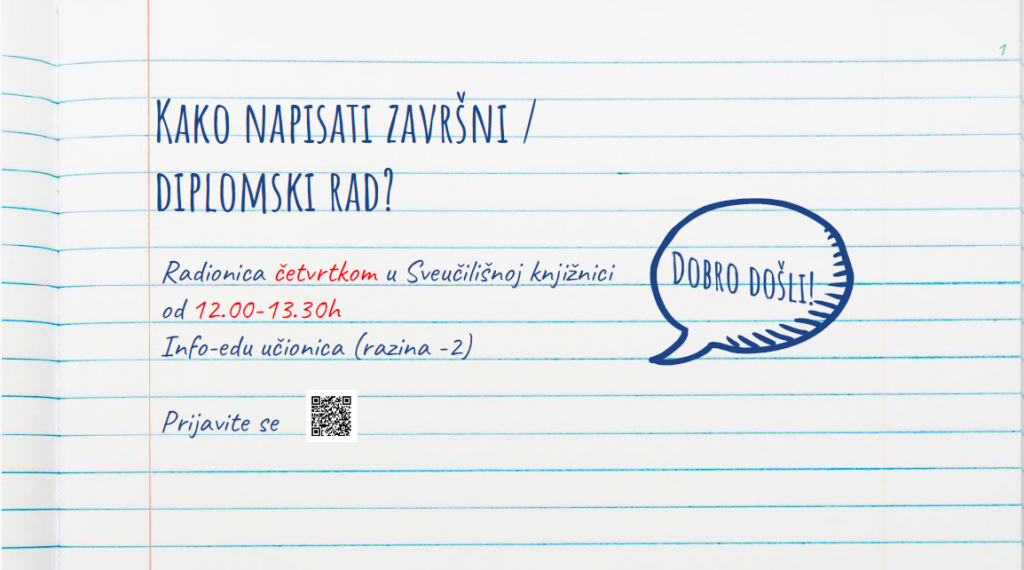 1
Kako napisati završni /
diplomski rad?
Radionica četvrtkom u Sveučilišnoj knjižnici
od 12.00-13.30h
Info-edu učionica (razina -2)
Dobro došli!
Prijavite se